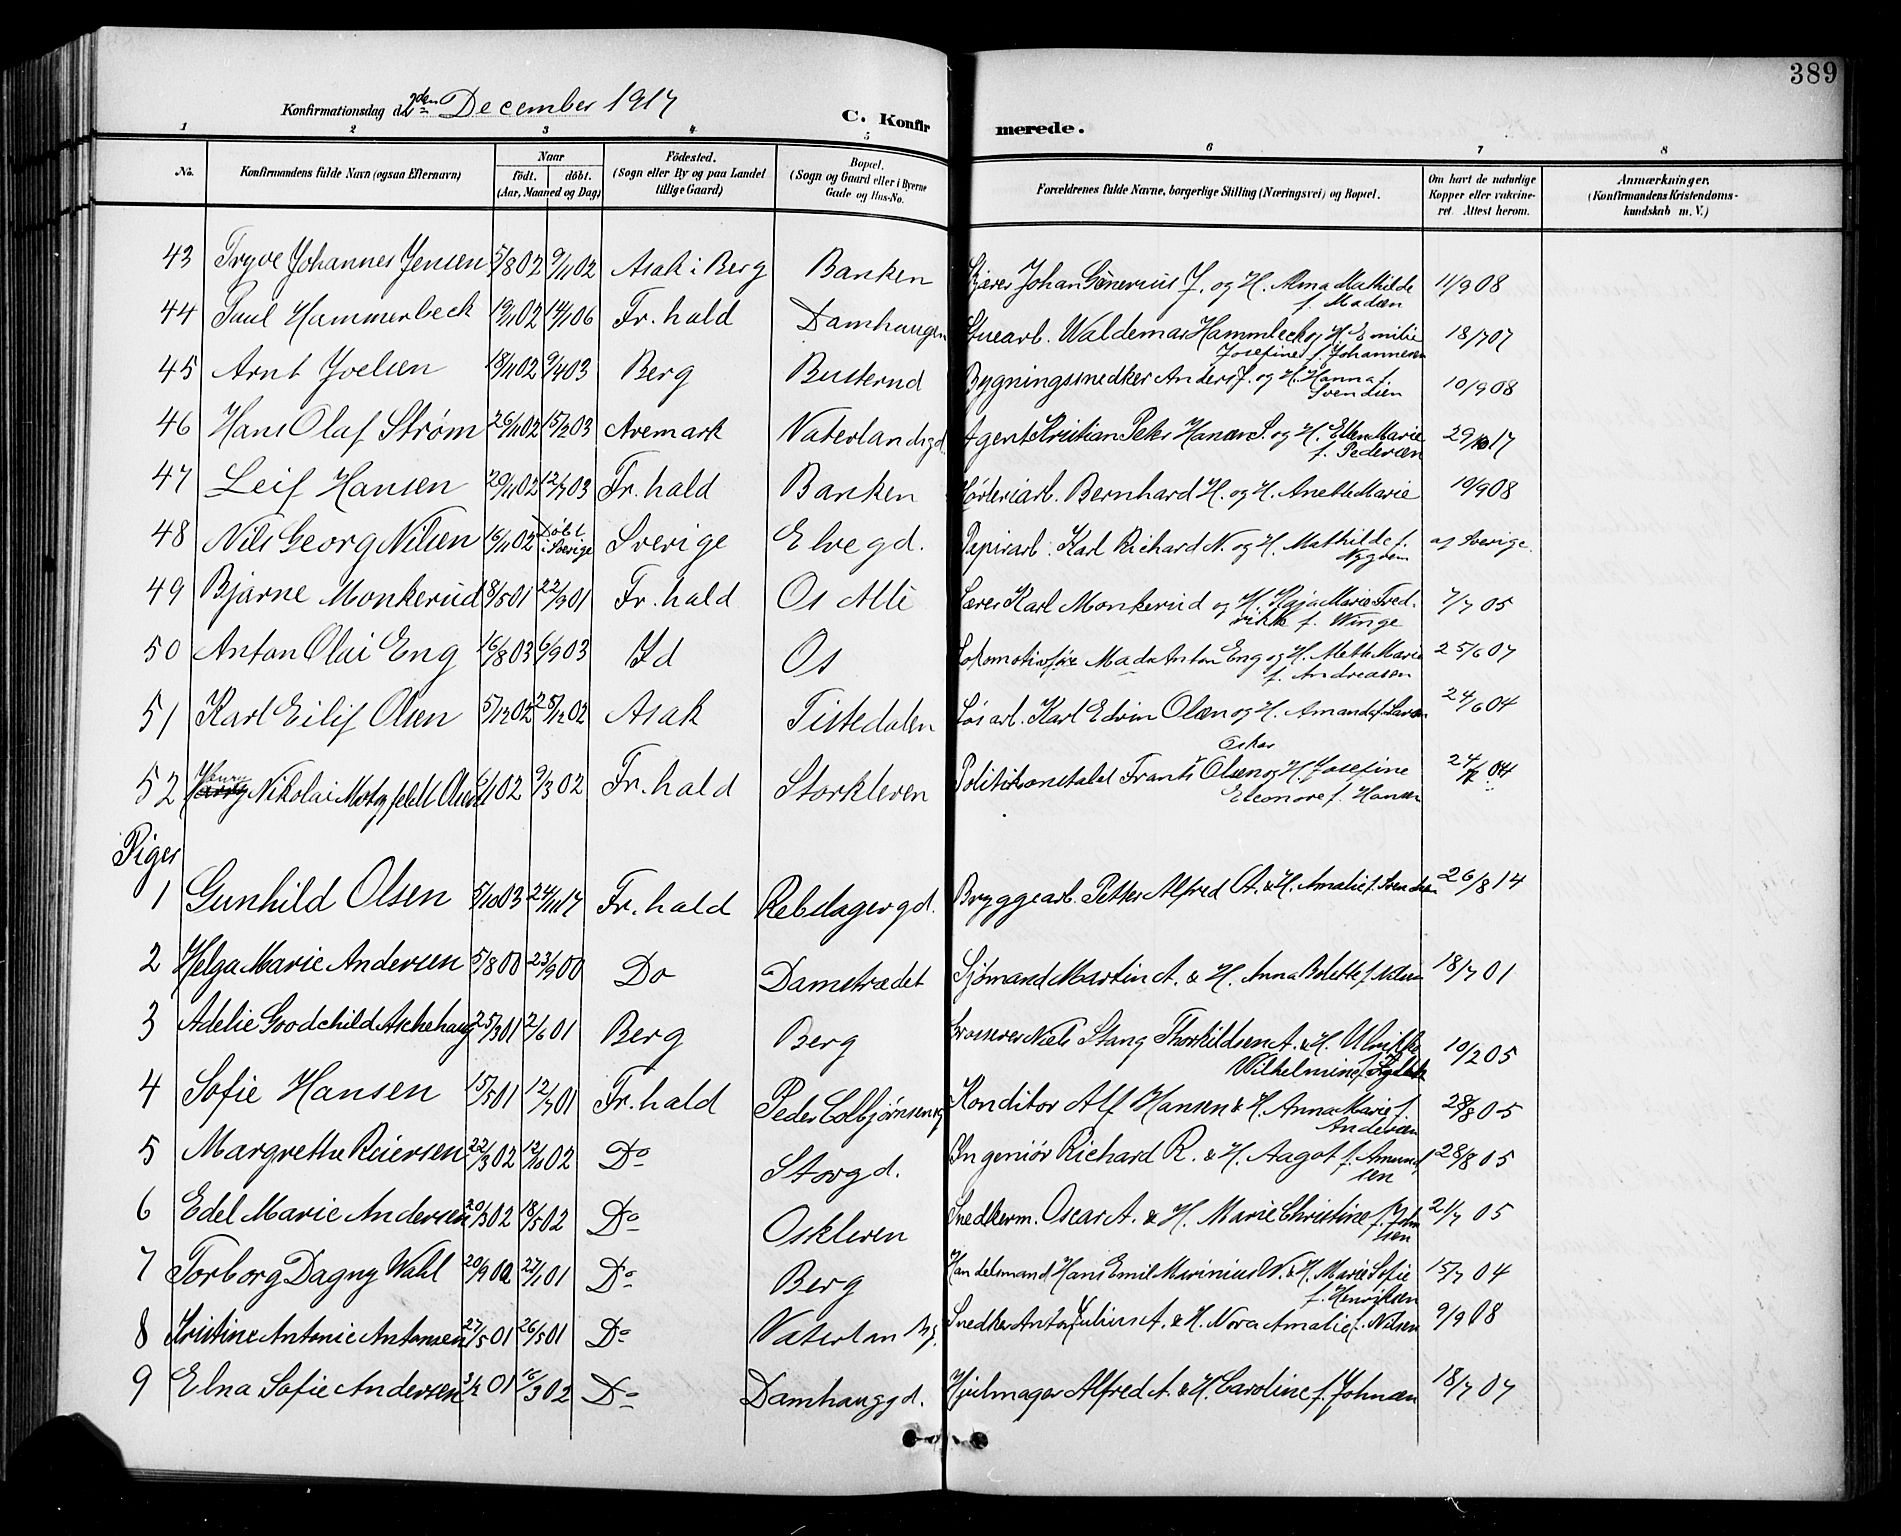 389
Konfirmationsdag d. 2den December 1917
C. Konfirmerede.
1 2 3 4 5 6 7 8
No.
Konfirmandens fulde Navn (ogsaa Efternavn)
Naar
født. døbt.
(Aar, Maaned og Dag)
Födested.
(Sogn eller By og paa Landet
tillige Gaard)
Bopæl.
(Sogn og Gaard eller i Byerne
Gade og Hus-No.
Forældrenes fulde Navne, borgerlige Stilling (Næringsvei) og Bopæl.
Om havt de naturlige
Kopper eller vakcine-
ret. Attest herom.
Anmærkninger.
(Konfirmandens Kristendoms-
kundskab m. V.)
43 Trygve Johannes Jensen 5/8 02 9/11 02 Asak i Berg Banken Johan J. og H. Alma Mathilde f. Madsen 11/9 08
44 Paul Hammerbeck 19/11 02 14/1 06 Fr.hald Damhaugen Stuearb. Waldemar Hammerbeck og H. Emilie Josefine f. Johannesen 18/7 07
45 Arnt Joelsen 18/11 02 9/4 03 Berg Busterud Bygningssnedker Anders J. og H. Hanna f. Svendsen 10/9 08
46 Hans Olaf Strøm 26/11 02 15/2 03 Aremark Vaterlandsgd. Agent Kristian Peter Hansen S. og H. Ellen Marie f. Pedersen 29/10 17
47 Leif Hansen 29/11 02 12/7 03 Fr.hald Banken Bernhard H. og H. Anette Marie 10/9 08
48 Nils Georg Nilsen 16/11 02 Døbt i Sverige Sverige Elvegd. Papirarb. Karl Richard N. og H. Mathilde f. Nygren af Sverige.
49 Bjarne Monkerud 8/8 01 22/9 01 Fr.hald Os Alle Lærer Karl Monkerud og H. Haja Marie Fredrikke f. Winge 7/7 05
50 Anton Olai Eng 16/8 03 6/9 03 Id Os Lokomotivfør. Mads Anton Eng og H. Mette Marie f. Andreasen 25/6 07
51 Karl Eilif Olsen 5/12 02 25/12 02 Asak Tistedalen Løsarb. Karl Edvin Olsen og H. Amanda f. Larsen 24/6 04
52 Nikolai Motzfeldt Olsen 6/1 02 9/3 02 Fr.hald Storkleven Politikonstabel Frants Oskar Olsen og H. Josefine Eleonore f. Hansen 24/ 04
Piger
1 Gunhild Olsen 5/10 03 24/11 17 Fr.hald Rebslagergd. Bryggearb. Petter Alfred O. & H. Amalie f. Svendsen 26/8 14
2 Helga Marie Andersen 5/8 00 23/9 00 Do Damstrædet Sjömand Martin A. & H. Anna Bolette f. Nilsen 18/7 01
3 Adelie Goodchild Aschehaug 25/3 01 2/6 01 Berg Berg Grosserer Niels Stang Thorkildsen A. & H. Ulrikke Wilhelmine f. 10/2 05
4 Sofie Hansen 15/5 01 12/7 01 Fr.hald Peder Colbjørnsensg. Konditor Alf Hansen & H. Anna Marie f. Andersen 28/8 05
5 Margrethe Reiersen 22/3 02 12/10 02 Do Storgd. Ingeniör Richard R. & H. Aagot f. Amundsen 28/8 05
6 Edel Marie Andersen 20/3 02 18/5 02 Do Oskleven Snedkerm. Oscar A. & H. Marie Christine f. Johnsen 21/7 05
7 Torborg Dagny Wahl 20/9 00 27/1 01 Do Berg Handelsmand Hans Emil Marinius W. & H. Marie Sofie f. Henriksen 15/7 04
8 Kristine Antonie Antonsen 27/5 01 26/5 01 Do Vaterland Snedker Anton Julius A. & H. Nora Amalie f. Nilsen 9/9 08
9 Elna Sofie Andersen 3/2 01 16/3 02 Do Damhauggd. Hjulmager Alfred A. & H. Caroline f. Johnsen 18/7 07